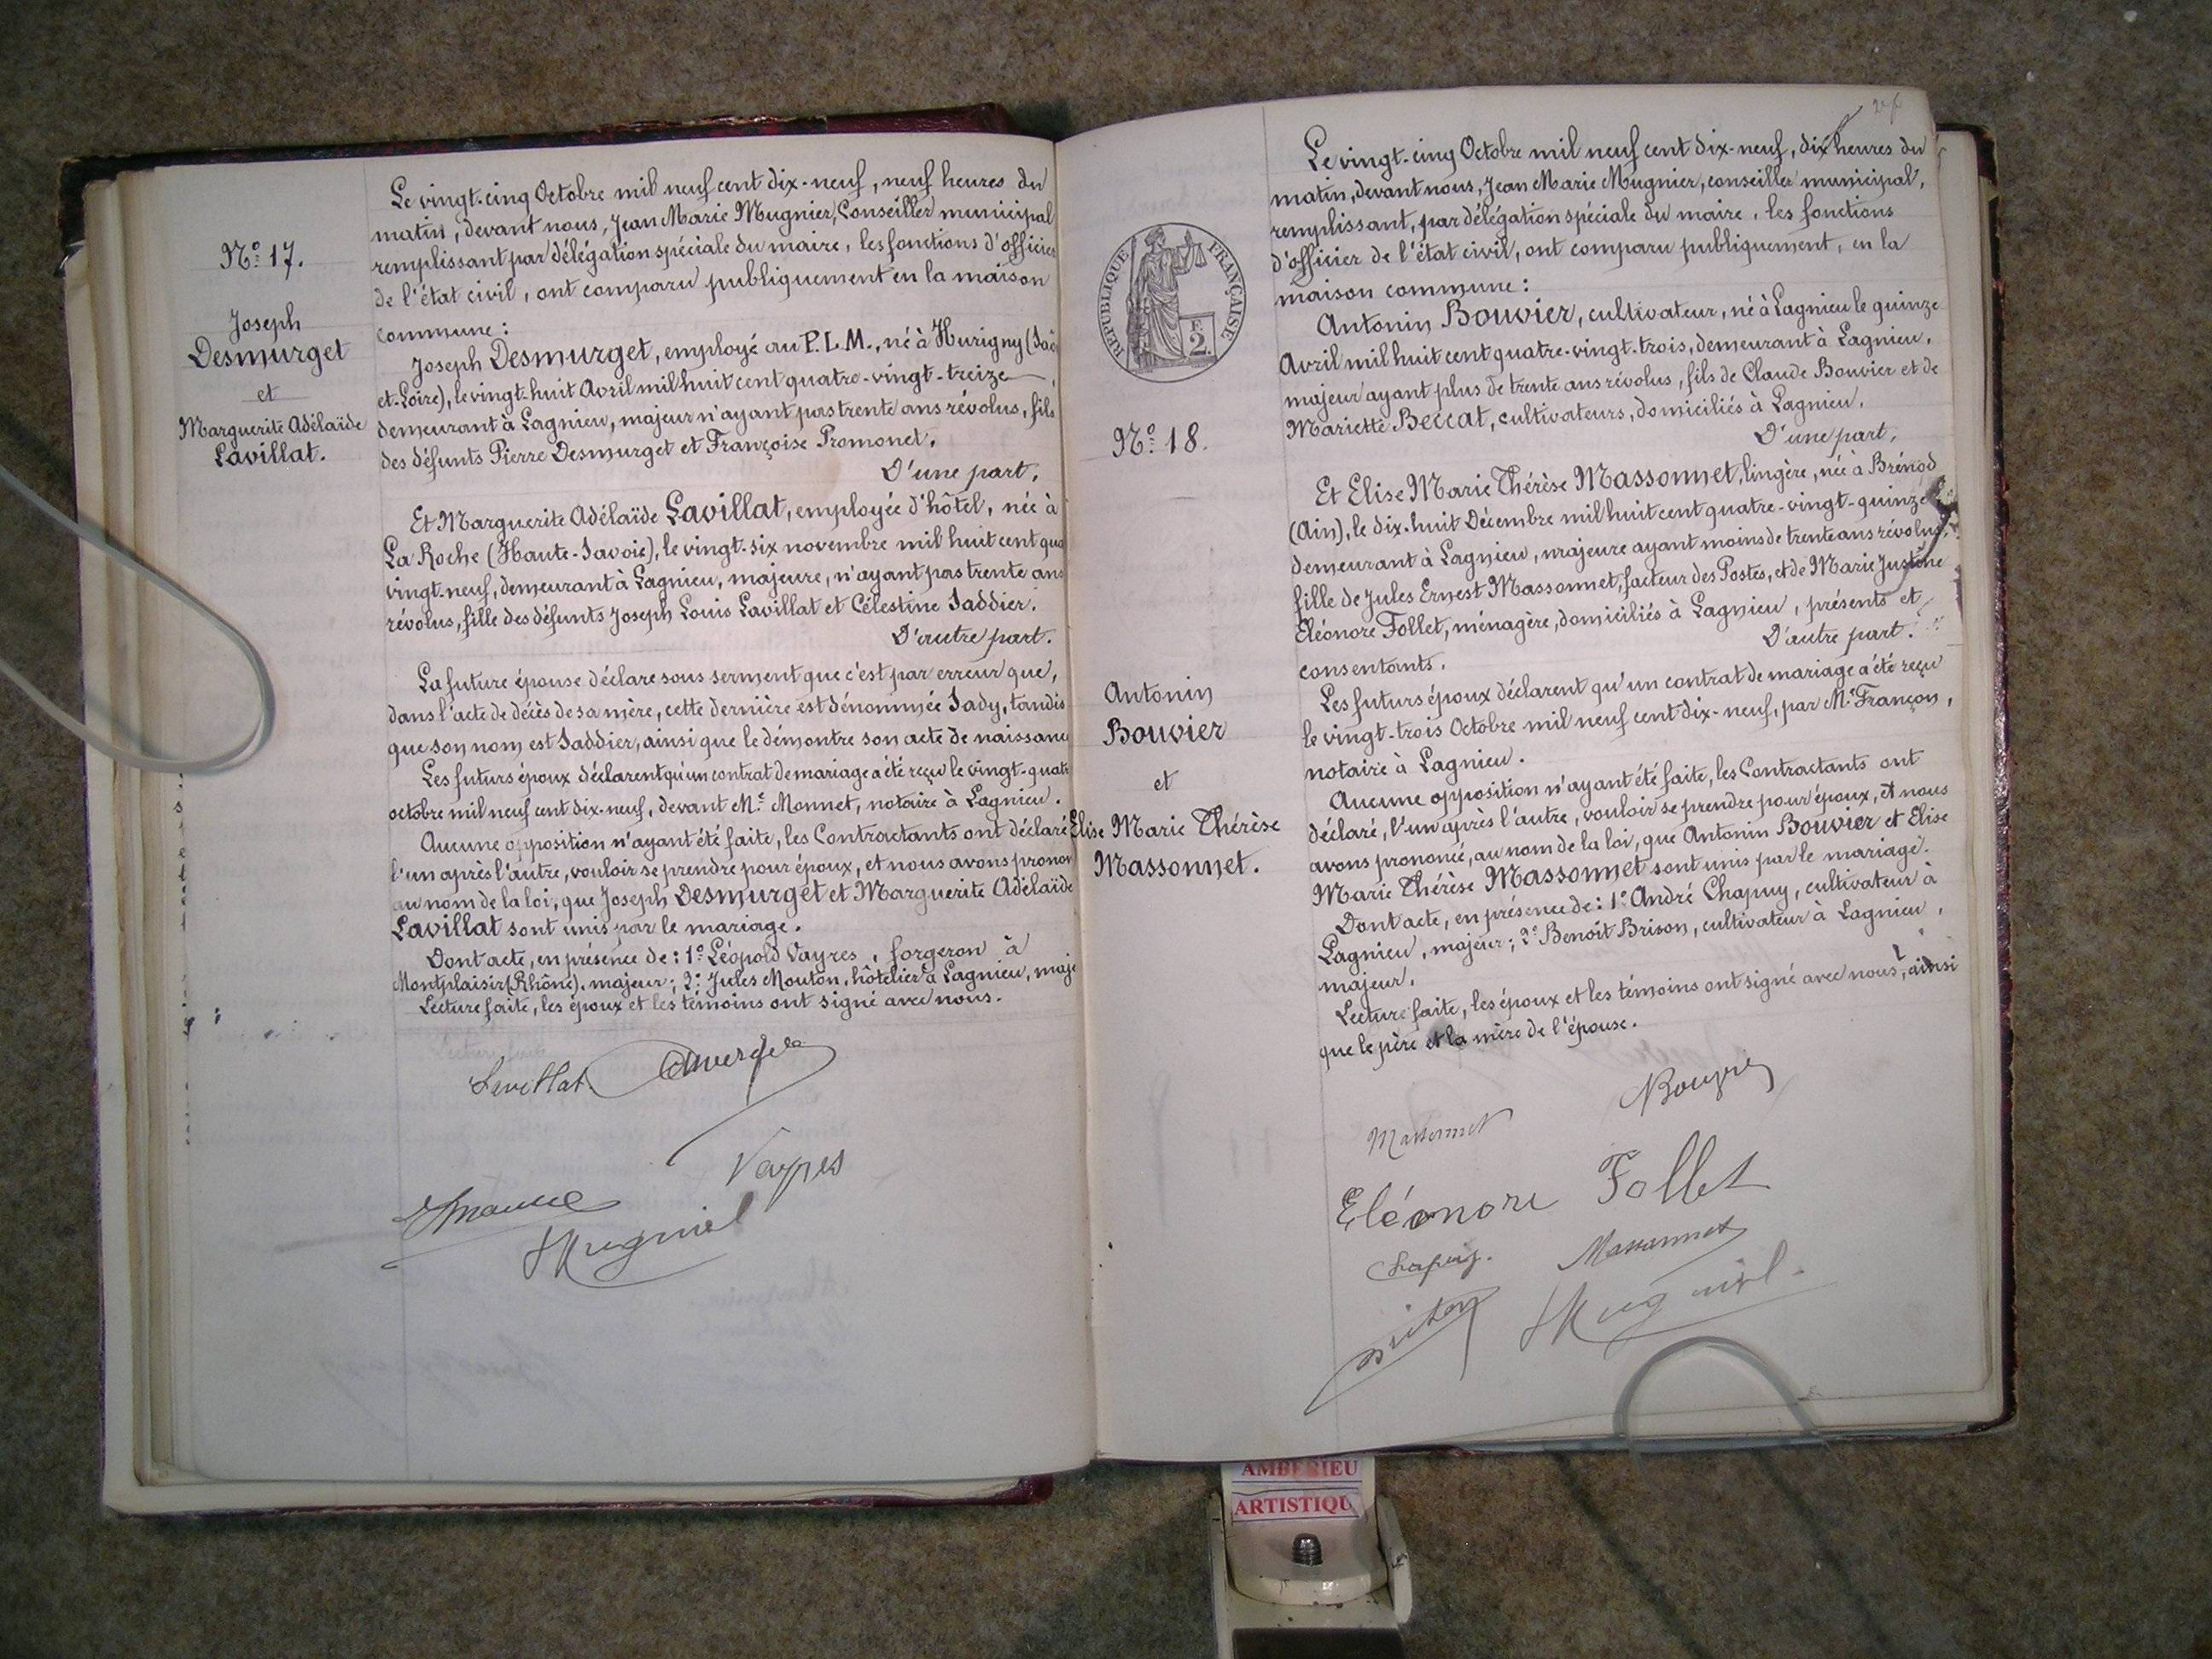 N°: 17.
Joseph
Desmurget
et
Marguerite Adélaïde
Lavillat.
Le vingt-cinq Octobre mil neuf cent dix-neuf, neuf heures du
matin, devant nous, Jean Marie Mugnier, Conseiller municipal
remplissant par délégation spéciale du maire, les fonctions d'officier
de l'état civil, ont comparu publiquement en la maison
commune:
Joseph Desmurget, employé au P.L.M., né à Hurigny (Saô
et-Loire), le vingt-huit Avril mil huit cent quatre-vingt-treize,
demeurant à Lagnieu, majeur n'ayant pas trente ans révolus, fils
des défunts Pierre Desmurget et Françoise Promonet,
D'une part,
Et Marguerite Adélaïde Lavillat, employée d'hôtel, née à
La Roche (Haute-Savoie), le vingt-six novembre mil huit cent qua
vingt-neuf, demeurant à Lagnieu, majeure, n'ayant pas trente ans
révolus, fille des défunts Joseph Louis Lavillat et Célestine Saddier.
D'autre part.
La future épouse déclare sous serment que c'est par erreur que,
dans l'acte de décès de sa mère, cette dernière est dénommée Sady, tandis
que son nom est Saddier, ainsi que le démontre son acte de naissance
Les futurs époux déclarent qu'un contrat de mariage a été reçu le vingt-quatre
octobre mil neuf cent dix-neuf, devant Me Monnet, notaire à Lagnieu.
Aucune opposition n'ayant été faite, les Contractants ont déclaré
l'un après l'autre, vouloir se prendre pour époux, et nous avons pronon
au nom de la loi, que Joseph Desmurget et Marguerite Adélaïde
Lavillat sont unis par le mariage.
Dont acte, en présence de: 1° Léopold Vayres, forgeron à
Montplaisir (Rhône), majeur; 2° Jules Mouton, hôtelier à Lagnieu, maje
Lecture faite, les époux et les témoins ont signé avec nous.
Lavillat
Vayres
Mugnier
REPUBLIQUE FRANÇAISE
F.
2.
N°: 18.
Antonin
Bouvier
et
Elise Marie Thérèse
Massonnet.
Le vingt-cinq Octobre mil neuf cent dix-neuf, dix heures du
matin, devant nous, Jean Marie Mugnier, conseiller municipal,
remplissant, par délégation spéciale du maire, les fonctions
d'officier de l'état civil, ont comparu publiquement, en la
maison commune:
Antonin Bouvier, cultivateur, né à Lagnieu le quinze
Avril mil huit cent quatre-vingt-trois, demeurant à Lagnieu,
majeur ayant plus de trente ans révolus, fils de Claude Bouvier et de
Mariette Beccat, cultivateurs, domiciliés à Lagnieu,
D'une part,
Et Elise Marie Thérèse Massonnet, lingère, née à Brénod
(Ain), le dix-huit Décembre mil huit cent quatre-vingt-quinze
demeurant à Lagnieu, majeure ayant moins de trente ans révolus,
fille de Jules Ernest Massonnet, facteur des Postes, et de Marie Justine
Eléonore Follet, ménagère, domiciliés à Lagnieu, présents et
consentants. D'autre part.
Les futurs époux déclarent qu'un contrat de mariage a été reçu
le vingt-trois Octobre mil neuf cent dix-neuf, par Me Françon,
notaire à Lagnieu.
Aucune opposition n'ayant été faite, les Contractants ont
déclaré, l'un après l'autre, vouloir se prendre pour époux, et nous
avons prononcé, au nom de la loi, que Antonin Bouvier et Elise
Marie Thérèse Massonnet sont unis par le mariage.
Dont acte, en présence de: 1° André Chapuy, cultivateur à
Lagnieu, majeur; 2° Benoît Brison, cultivateur à Lagnieu,
majeur.
Lecture faite, les époux et les témoins ont signé avec nous, ainsi
que le père et la mère de l'épouse.
Bouvier
Massonnet
Eléonore Follet
Chapuy.
Massonnet
Brison
Mugnier
AMBERIEU
ARTISTIQU